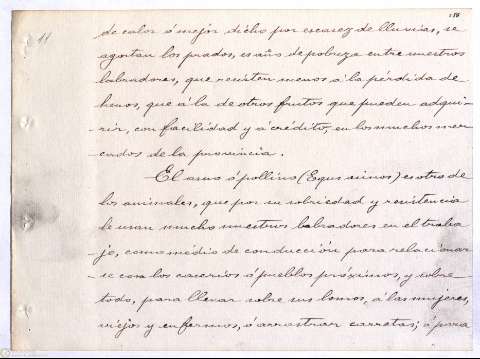 11
de calor ó mejor dicho por escasez de lluvias, se
agostan los prados, es año de pobreza entre nuestros
labradores, que resisten menos á la pérdida de
henos, que á la de otros frutos que pueden adqui-
-rir, con facilidad y á crédito, en los muchos mer-
-cados de la provincia.
El asno ó pollino (Equs sinus) es otro de
los animales, que por su sobriedad y resistencia
le usan mucho nuestros labradores en el traba-
jo, como médio de conducción para relacionar-
-se con los caserios ó pueblos próximos, y sobre
todo, para llevar sobre sus lomos, á las mujeres,
viejos y enfermos, ó arrastrar carretas; ó para